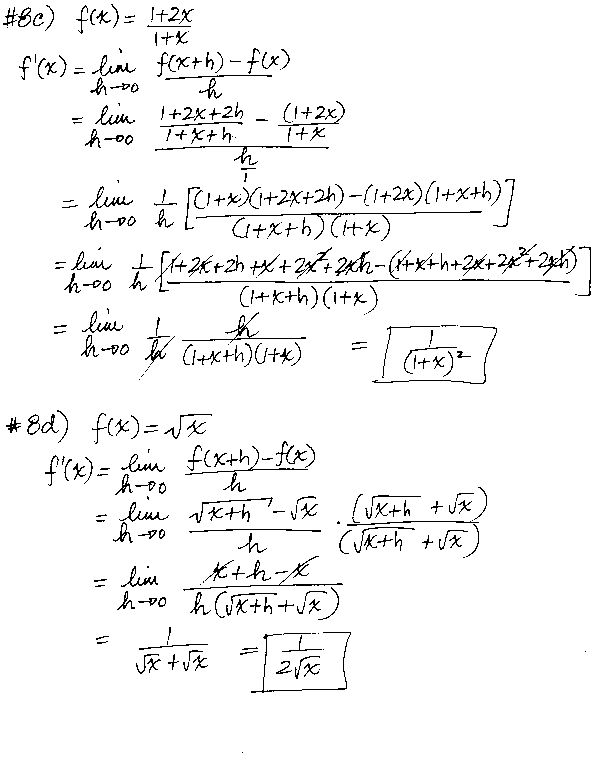 #8c) f(x) = (1+2x)/(1+x)
f'(x) = lim h→0 (f(x+h) − f(x))/h
= lim h→0 ((1+2x+2h)/(1+x+h) − (1+2x)/(1+x))/(h/1)
= lim h→0 1/h [((1+x)(1+2x+2h) − (1+2x)(1+x+h))/((1+x+h)(1+x))]
= lim h→0 1/h [(1+2x+2h+x+2x²+2xh − (1+x+h+2x+2x²+2xh))/((1+x+h)(1+x))]
= lim h→0 1/h h/((1+x+h)(1+x)) = 1/(1+x)²
#8d) f(x) = √x
f'(x) = lim h→0 (f(x+h) − f(x))/h
= lim h→0 (√(x+h) − √x)/h · (√(x+h) + √x)/(√(x+h) + √x)
= lim h→0 (x+h−x)/(h(√(x+h) + √x))
= 1/(√x + √x) = 1/(2√x)